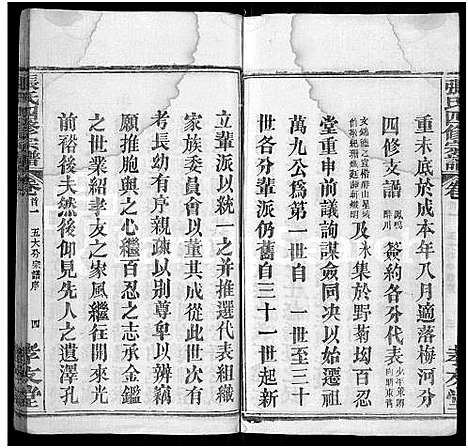 張氏四修宗譜
重未底於成本年八月適落梅河分
四修支譜鳳鳴醉川簽約各分代表
及永集於野菊坳百忍
堂重申前議詢謀僉同決以始遷祖
萬九公爲第一世自一世至三十
世各分另派自三十一世起新
立輩派以統一之幷推選代表組織
家族委員會以董其成從此世次有
考長幼有序親疎以別尊卑以辨竊
願推胞與之心繼百忍之志承金鑑
之世業紹孝友之家風繼往開來光
前裕後夫然後仰見先人之遺澤孔
張氏四修宗譜
卷首一
五大分宗譜序
四
孝友堂